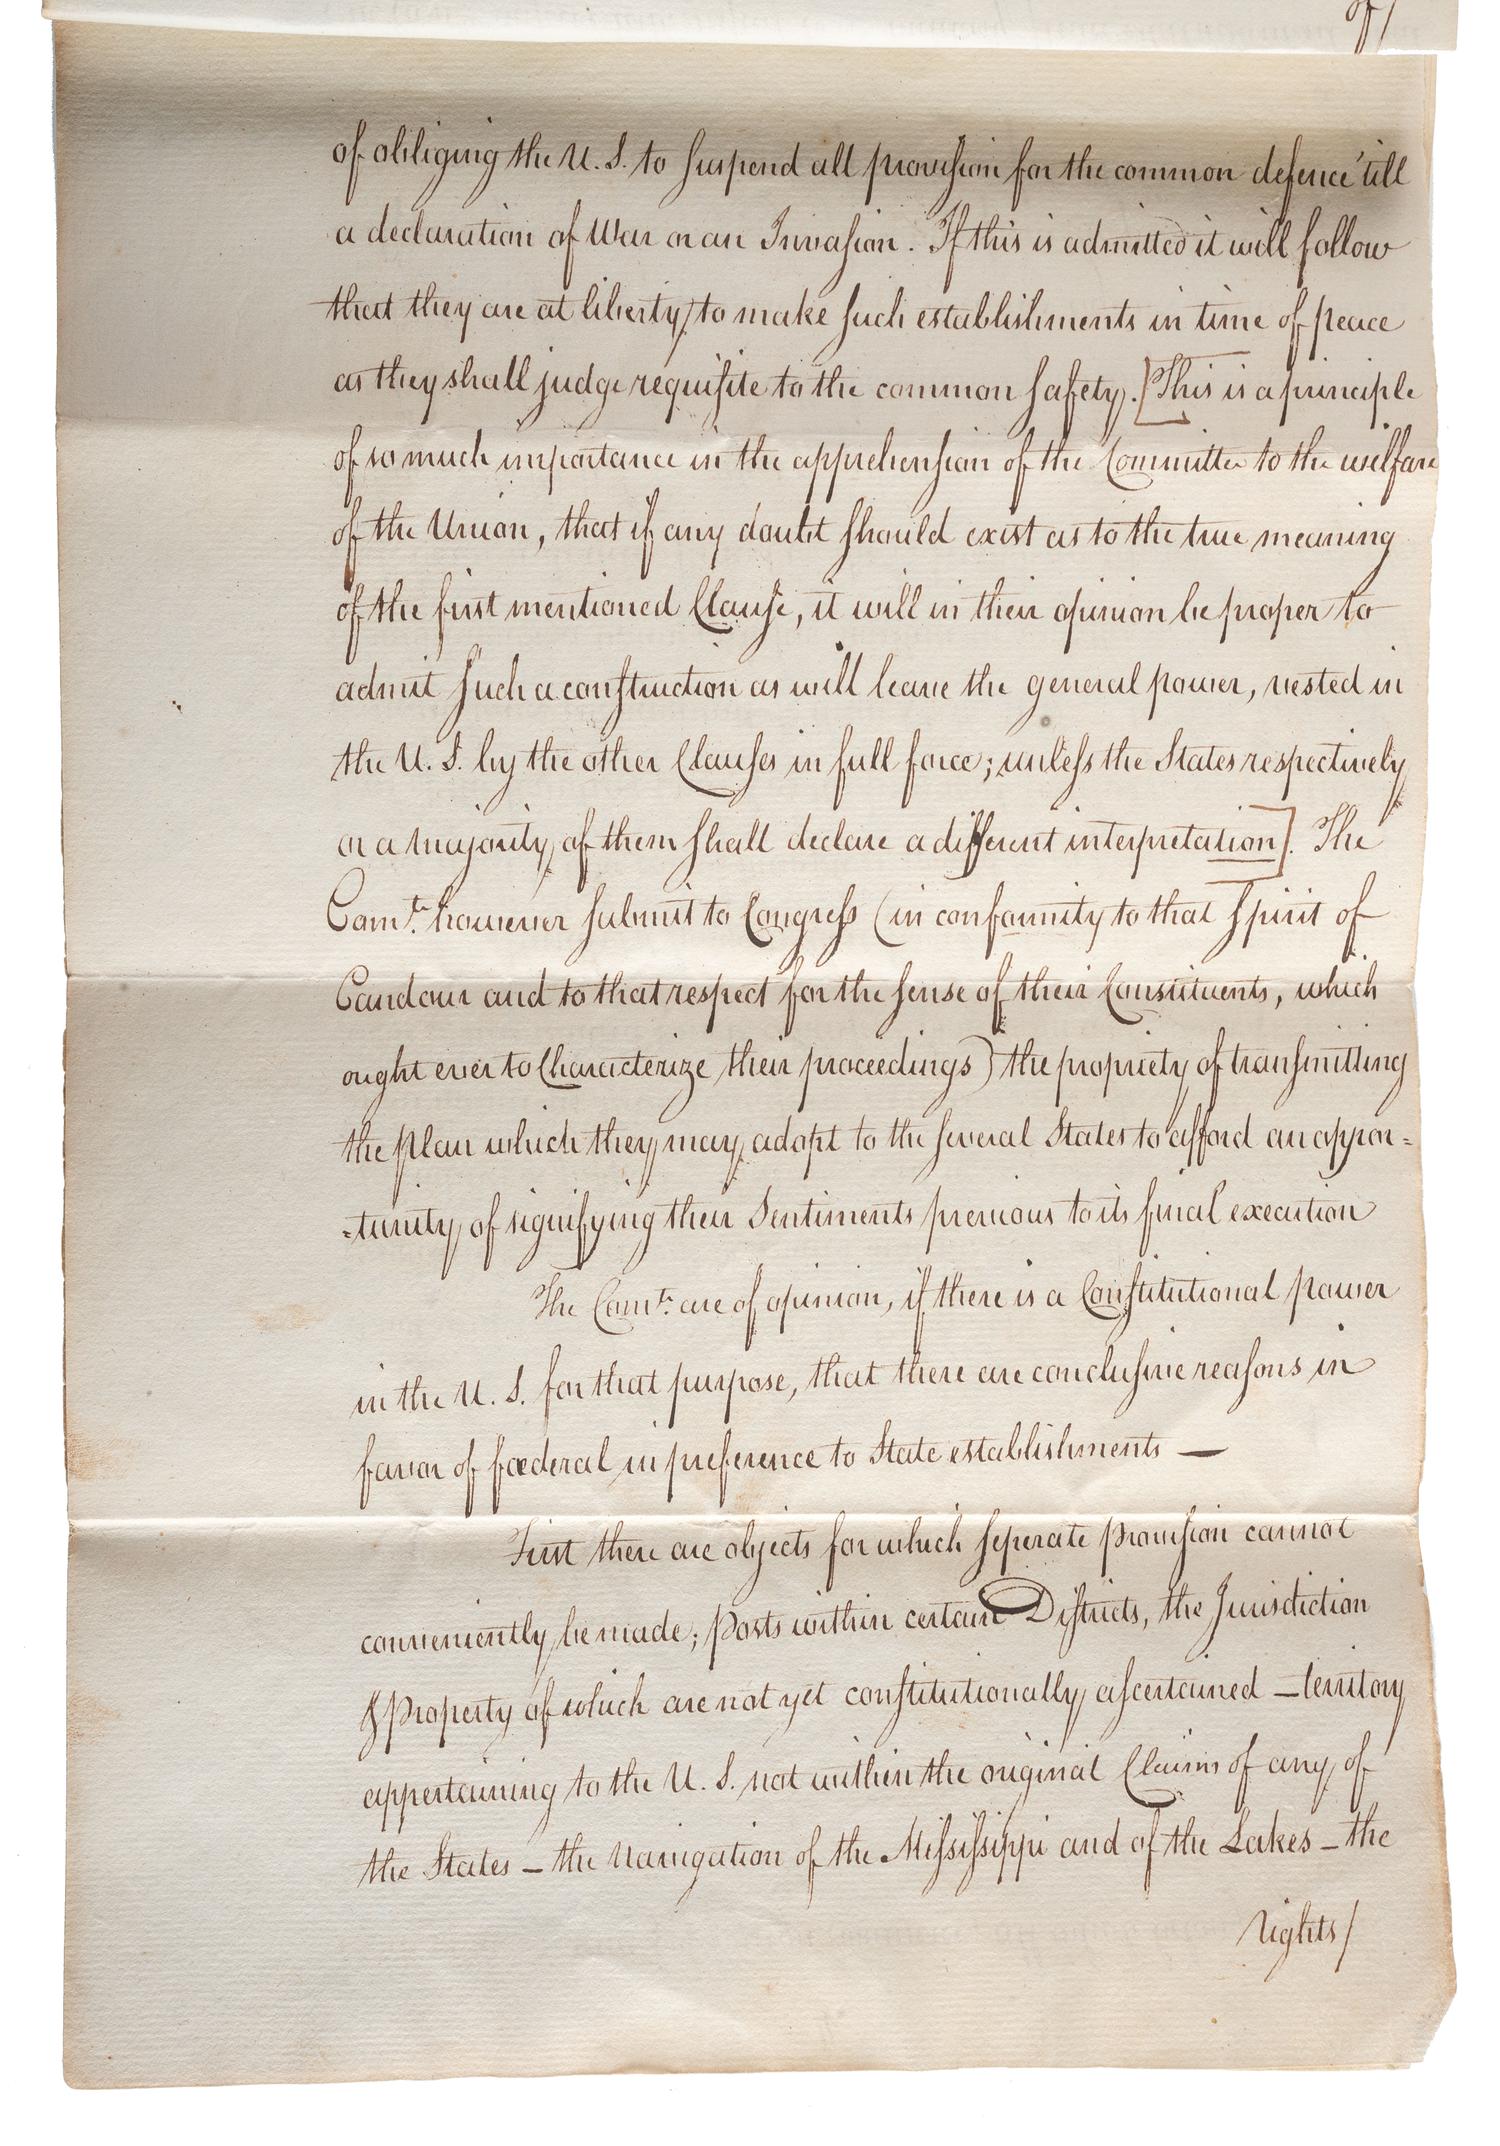 of/
of obliging the U. S. to suspend all provision for the common defence 'till
a declaration of War or an Invasion. If this is admitted it will follow
that they are at liberty, to make such establishments in time of peace
as they shall judge requisite to the common safety. [This is a principle
of so much importance in the apprehension of the Committee to the welfare
of the Union, that if any doubt should exist as to the true meaning
of the first mentioned Clause, it will in their opinion be proper to
admit such a construction as will leave the general power, vested in
the U. S. by the other Clauses in full force; unless the States respectively
or a majority of them shall declare a different interpretation]. The
Comte. however submit to Congress (in conformity to that spirit of
Candour and to that respect for the sense of their Constituents, which
ought ever to Characterize their proceedings) the propriety of transmitting
the plan which they may adopt to the several States to afford an oppor=
=tunity of signifying their Sentiments previous to its final execution
The Comte. are of opinion, if there is a Constitutional power
in the U. S. for that purpose, that there are conclusive reasons in
favor of fœderal in preference to State establishments —
First there are objects for which seperate provision cannot
conveniently be made; posts within certain Districts, the Jurisdiction
& Property of which are not yet constitutionally ascertained – territory
appertaining to the U. S. not within the original Claims of any of
the States – the Navigation of the Mississippi and of the Lakes – the
rights/